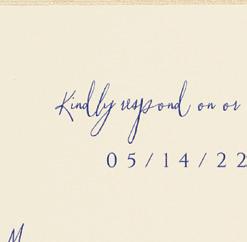 Kindly respond on or
05/14/22
M